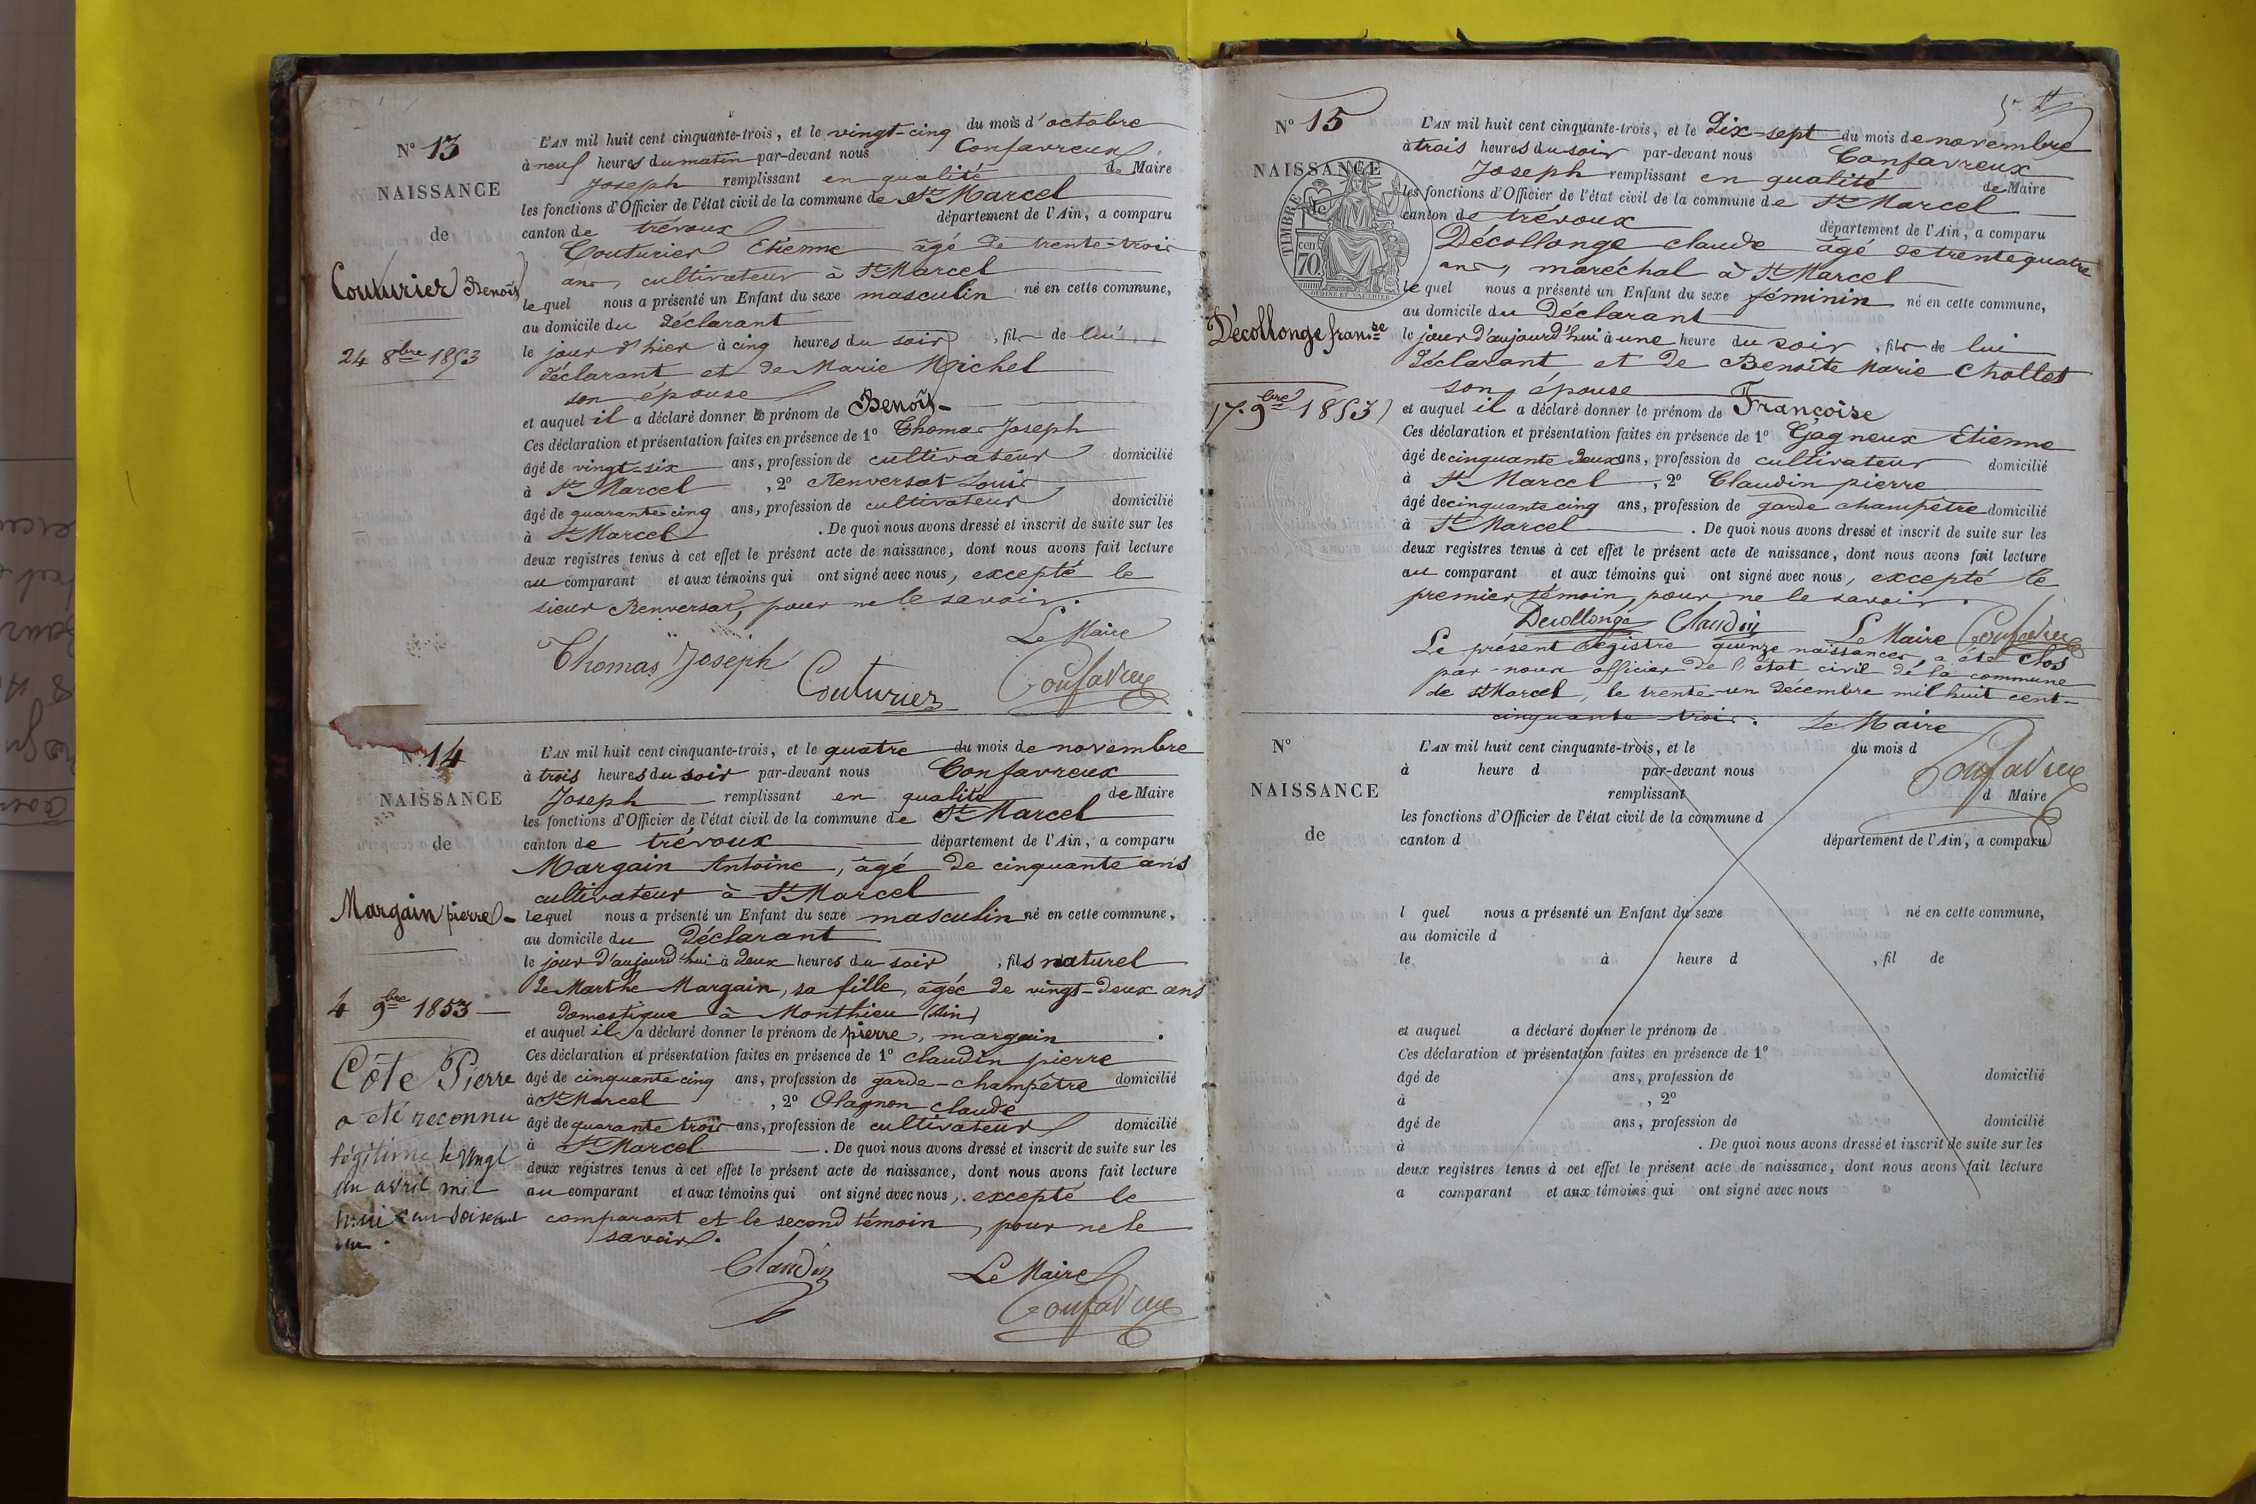 N° 13
NAISSANCE
de
Couturier Benoît
24 8bre 1853
L'AN mil huit cent cinquante-trois, et le vingt-cinq du mois d'octobre
à neuf heures du matin par-devant nous Confavreux
Joseph remplissant en qualité de Maire
les fonctions d'Officier de l'état civil de la commune de St Marcel
canton de trévoux département de l'Ain, a comparu
Couturier Etienne âgé de trente-trois
ans, cultivateur à St Marcel
lequel nous a présenté un Enfant du sexe masculin né en cette commune,
au domicile du déclarant
le jour d'hier à cinq heures du soir, fils de lui
déclarant et de Marie Michel
son épouse
et auquel il a déclaré donner le prénom de Benoît
Ces déclaration et présentation faites en présence de 1° Thomas Joseph
âgé de vingt-six ans, profession de cultivateur domicilié
à St Marcel, 2° Renversat Louis
âgé de quarante-cinq ans, profession de cultivateur domicilié
à St Marcel. De quoi nous avons dressé et inscrit de suite sur les
deux registres tenus à cet effet le présent acte de naissance, dont nous avons fait lecture
au comparant et aux témoins qui ont signé avec nous, excepté le
sieur Renversat, pour ne le savoir.
Le Maire
Thomas Joseph Couturier Confavreux
N° 14
NAISSANCE
de
Margain pierre
4 9bre 1853
Côte Pierre
a été reconnu
légitime le vingt
un avril mil
huit cent soixante
un.
L'AN mil huit cent cinquante-trois, et le quatre du mois de novembre
à trois heures du soir par-devant nous Confavreux
Joseph remplissant en qualité de Maire
les fonctions d'Officier de l'état civil de la commune de St Marcel
canton de trévoux département de l'Ain, a comparu
Margain Antoine, âgé de cinquante ans
cultivateur à St Marcel
lequel nous a présenté un Enfant du sexe masculin né en cette commune,
au domicile du déclarant
le jour d'aujourd'hui à deux heures du soir, fils naturel
de Marthe Margain, sa fille, âgée de vingt-deux ans
domestique à Monthieu (Ain)
et auquel il a déclaré donner le prénom de pierre, margain
Ces déclaration et présentation faites en présence de 1° Claudin pierre
âgé de cinquante cinq ans, profession de garde-champêtre domicilié
à St Marcel, 2° Olagnon claude
âgé de quarante trois ans, profession de cultivateur domicilié
à St Marcel. De quoi nous avons dressé et inscrit de suite sur les
deux registres tenus à cet effet le présent acte de naissance, dont nous avons fait lecture
au comparant et aux témoins qui ont signé avec nous, excepté le
comparant et le second témoin, pour ne le
savoir.
Claudin Le Maire
Confavreux
N° 15
NAISSANCE
de
TIMBRE
cen
70
Décollonge franse
17. 9bre 1853
L'AN mil huit cent cinquante-trois, et le Dix-sept du mois de novembre
à trois heures du soir par-devant nous Confavreux
Joseph remplissant en qualité de Maire
les fonctions d'Officier de l'état civil de la commune de St Marcel
canton de trévoux département de l'Ain, a comparu
Décollonge claude âgé de trente quatre
ans, maréchal à St Marcel
lequel nous a présenté un Enfant du sexe féminin né en cette commune,
au domicile du Déclarant
le jour d'aujourd'hui à une heure du soir, fille de lui
déclarant et de Benoîte Marie Chollet
son épouse
et auquel il a déclaré donner le prénom de Françoise
Ces déclaration et présentation faites en présence de 1° Gagneux Etienne
âgé de cinquante deux ans, profession de cultivateur domicilié
à St Marcel, 2° Claudin pierre
âgé de cinquante cinq ans, profession de garde champêtre domicilié
à St Marcel. De quoi nous avons dressé et inscrit de suite sur les
deux registres tenus à cet effet le présent acte de naissance, dont nous avons fait lecture
au comparant et aux témoins qui ont signé avec nous, excepté le
premier témoin, pour ne le savoir.
Decollonge Claudin Le Maire Confavreux
Le présent Registre quinze naissances, a été clos
par nous officier de l'état civil de la commune
de St Marcel, le trente-un décembre mil huit cent-
cinquante trois. Le Maire
Confavreux
N°
NAISSANCE
de
L'AN mil huit cent cinquante-trois, et le du mois d
à heure d par-devant nous
remplissant d Maire
les fonctions d'Officier de l'état civil de la commune d
canton d département de l'Ain, a comparu
l quel nous a présenté un Enfant du sexe né en cette commune,
au domicile d
le à heure d , fil de
et auquel a déclaré donner le prénom de
Ces déclaration et présentation faites en présence de 1°
âgé de ans, profession de domicilié
à , 2°
âgé de ans, profession de domicilié
à . De quoi nous avons dressé et inscrit de suite sur les
deux registres tenus à cet effet le présent acte de naissance, dont nous avons fait lecture
a comparant et aux témoins qui ont signé avec nous